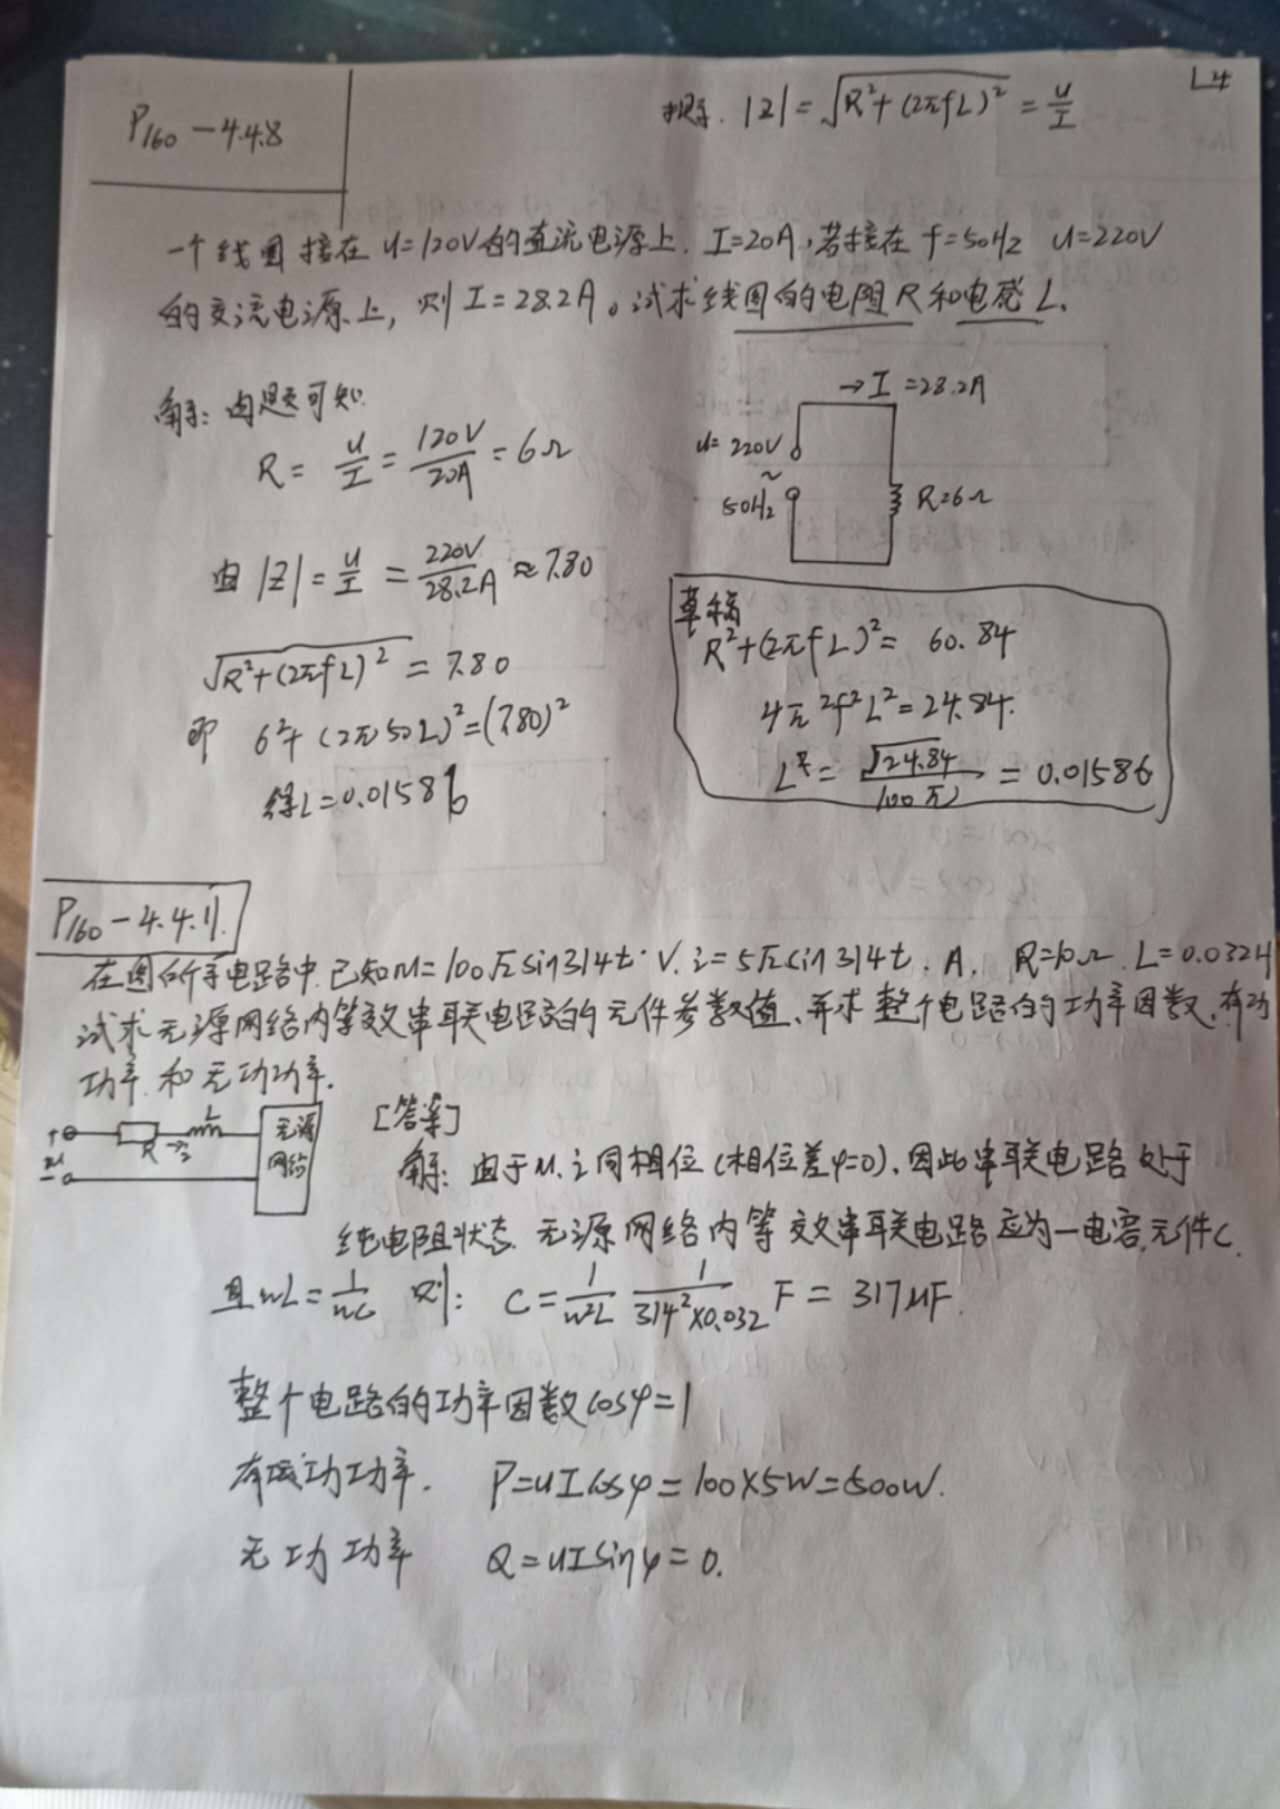 L4
P160-4.4.8
提示. |Z|=√R²+(2πfL)²=U/I
一个线圈接在U=120V的直流电源上. I=20A,若接在 f=50Hz U=220V
的交流电源上,则I=28.2A。试求线圈的电阻R和电感L.
解:由题可知.
R=U/I=120V/20A=6Ω
→I=28.2A
U=220V
~
50Hz
R=6Ω
由|Z|=U/I=220V/28.2A≈7.80
√R²+(2πfL)²=7.80
即 6²+(2π50L)²=(7.80)²
得L=0.01586
草稿
R²+(2πfL)²=60.84
4π²f²L²=24.84.
L=√24.84/100π=0.01586
P160-4.4.11.
在图所示电路中.已知u=100√2sin314t·V. i=5√2sin314t. A. R=10Ω. L=0.032H
试求无源网络内等效串联电路的元件参数值、并求整个电路的功率因数.有功
功率.和无功功率.
+
u
-
R
→i
L
无源
网络
[答案]
解:由于u.i同相位(相位差φ=0).因此串联电路处于
纯电阻状态.无源网络内等效串联电路应为一电容元件C.
且wL=1/wC 则: C=1/w²L 1/314²×0.032 F=317μF.
整个电路的功率因数cosφ=1
有功功率. P=UIcosφ=100×5W=500W.
无功功率 Q=UIsinφ=0.